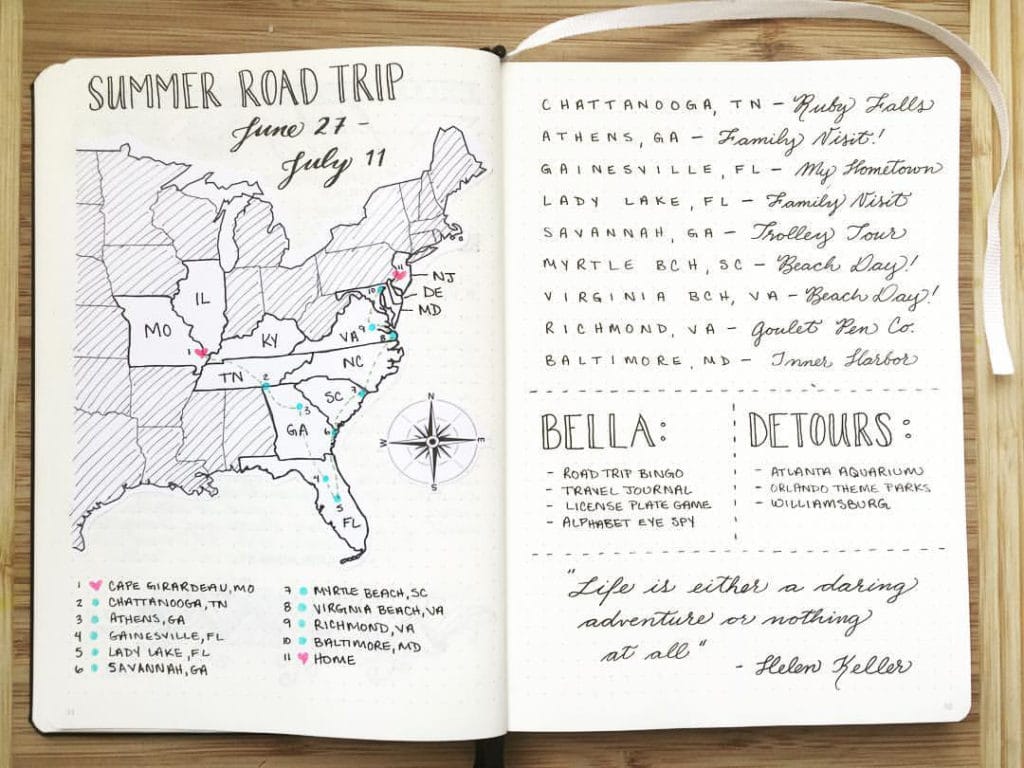 SUMMER ROAD TRIP
June 27 -
July 11
NJ
DE
MD
IL
MO
KY
VA
NC
TN
SC
GA
FL
1
2
3
4
5
6
7
8
9
10
11
N
W
E
S
1 CAPE GIRARDEAU, MO
2 CHATTANOOGA, TN
3 ATHENS, GA
4 GAINESVILLE, FL
5 LADY LAKE, FL
6 SAVANNAH, GA
7 MYRTLE BEACH, SC
8 VIRGINIA BEACH, VA
9 RICHMOND, VA
10 BALTIMORE, MD
11 HOME
CHATTANOOGA, TN - Ruby Falls
ATHENS, GA - Family Visit!
GAINESVILLE, FL - My Hometown
LADY LAKE, FL - Family Visit
SAVANNAH, GA - Trolley Tour
MYRTLE BCH, SC - Beach Day!
VIRGINIA BCH, VA - Beach Day!
RICHMOND, VA - Goulet Pen Co.
BALTIMORE, MD - Inner Harbor
BELLA:
- ROAD TRIP BINGO
- TRAVEL JOURNAL
- LICENSE PLATE GAME
- ALPHABET EYE SPY
DETOURS:
- ATLANTA AQUARIUM
- ORLANDO THEME PARKS
- WILLIAMSBURG
"Life is either a daring
adventure or nothing
at all"
- Helen Keller